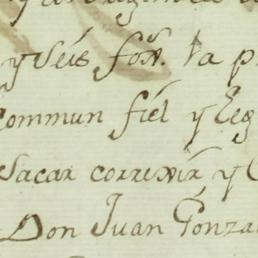 y seis fox. la p
Commun fiel y Leg
Sacar corregir y C
Don Juan Gonza